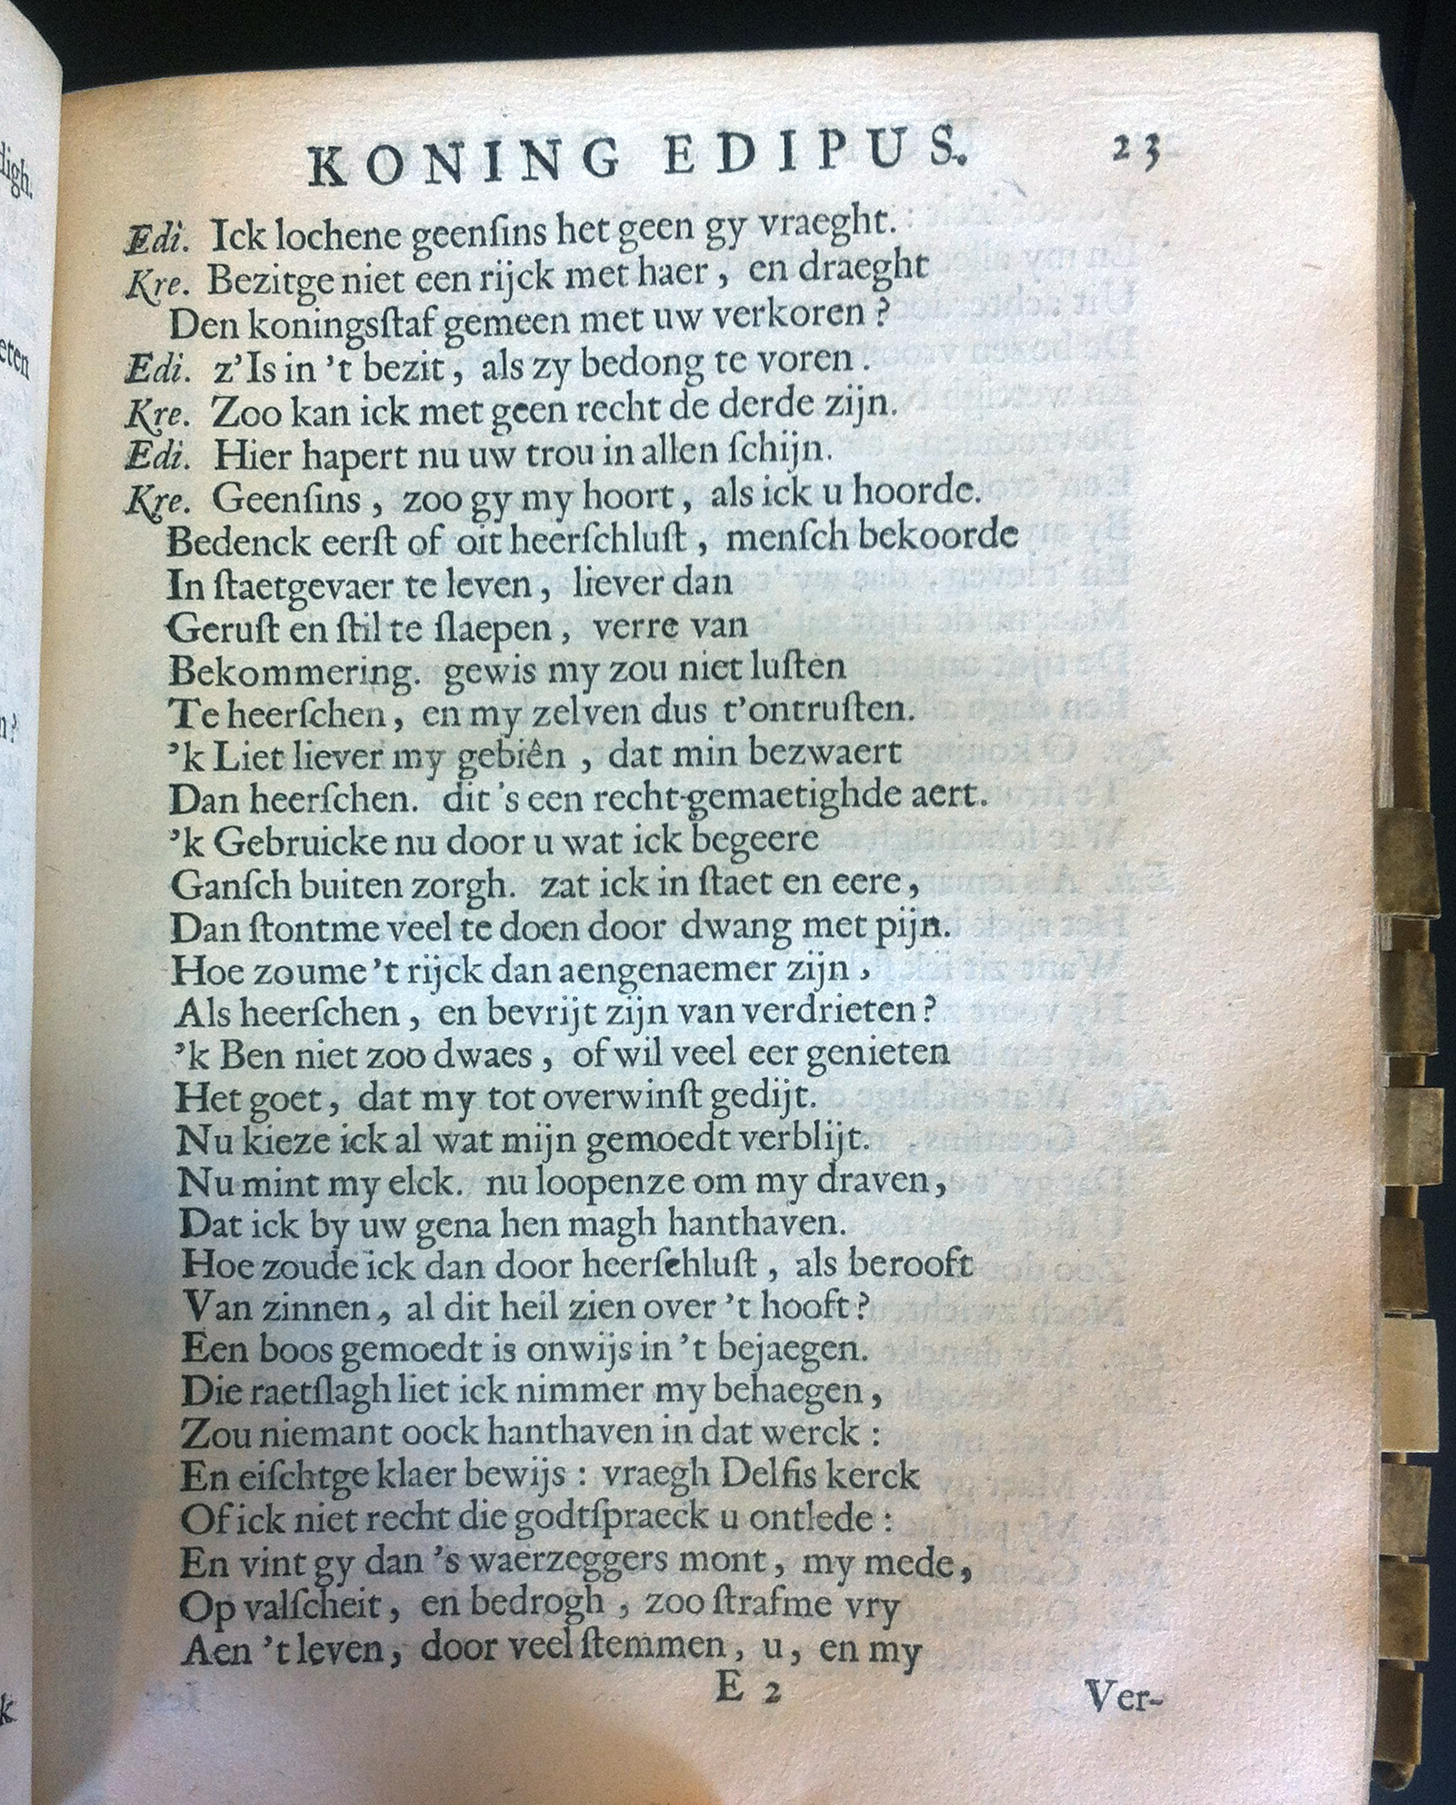 KONING EDIPUS. 23
Edi. Ick lochene geenſins het geen gy vraeght.
Kre. Bezitge niet een rijck met haer, en draeght
Den koningsſtaf gemeen met uw verkoren?
Edi. z'Is in 't bezit, als zy bedong te voren.
Kre. Zoo kan ick met geen recht de derde zijn.
Edi. Hier hapert nu uw trou in allen ſchijn.
Kre. Geenſins, zoo gy my hoort, als ick u hoorde.
Bedenck eerſt of oit heerſchluſt, menſch bekoorde
In ſtaetgevaer te leven, liever dan
Geruſt en ſtil te ſlaepen, verre van
Bekommering. gewis my zou niet luſten
Te heerſchen, en my zelven dus t'ontruſten.
'k Liet liever my gebiên, dat min bezwaert
Dan heerſchen. dit 's een recht-gemaetighde aert.
'k Gebruicke nu door u wat ick begeere
Ganſch buiten zorgh. zat ick in ſtaet en eere,
Dan ſtontme veel te doen door dwang met pijn.
Hoe zoume 't rijck dan aengenaemer zijn,
Als heerſchen, en bevrijt zijn van verdrieten?
'k Ben niet zoo dwaes, of wil veel eer genieten
Het goet, dat my tot overwinſt gedijt.
Nu kieze ick al wat mijn gemoedt verblijt.
Nu mint my elck. nu loopenze om my draven,
Dat ick by uw gena hen magh hanthaven.
Hoe zoude ick dan door heerſchluſt, als berooft
Van zinnen, al dit heil zien over 't hooft?
Een boos gemoedt is onwijs in 't bejaegen.
Die raetſlagh liet ick nimmer my behaegen,
Zou niemant oock hanthaven in dat werck:
En eiſchtge klaer bewijs: vraegh Delfis kerck
Of ick niet recht die godtſpraeck u ontlede:
En vint gy dan 's waerzeggers mont, my mede,
Op valſcheit, en bedrogh, zoo ſtrafme vry
Aen 't leven, door veel ſtemmen, u, en my
E 2 Ver-